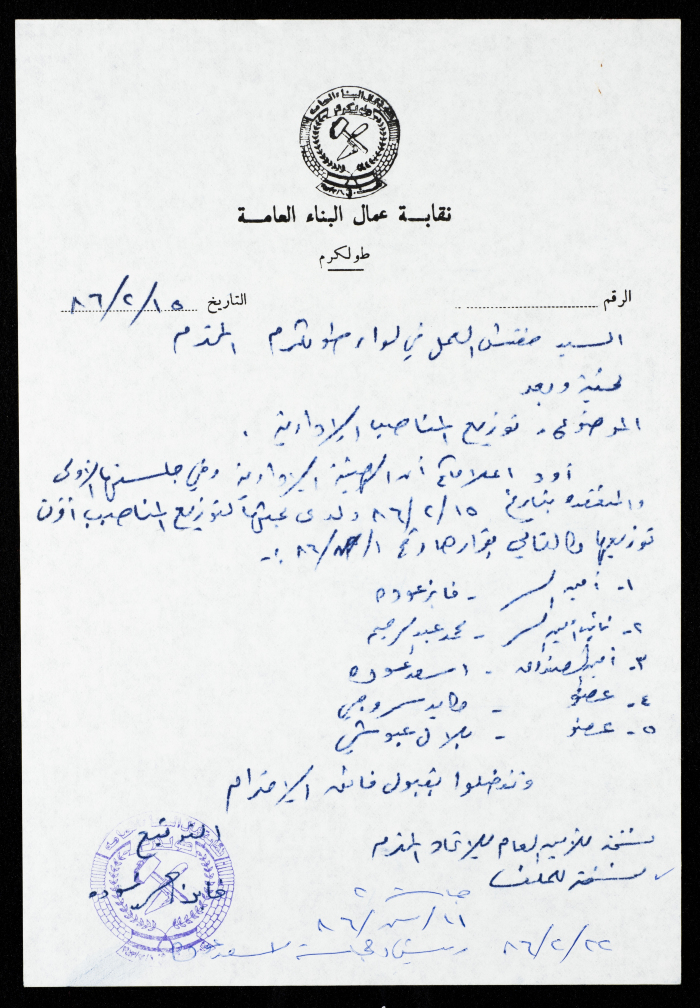 نقابة عمال البناء العامة
طولكرم
الرقم
التاريخ ٨٦/٢/١٥
السيد مفتش العمل في لواء طولكرم المحترم
تحية وبعد
الموضوع :- توزيع المناصب الإدارية .
أود اعلامكم أن الهيئة الإدارية وفي جلستها الأولى
والمنعقدة بتاريخ ٨٦/٢/١٥ ولدى بحثها لتوزيع المناصب
توزيعها كالتالي بقرار صادر رقم ١/ /٨٦ :-
١- أمين السر - فايز عوده
٢- نائب أمين السر - محمد عبد الرحيم
٣- أمين الصندوق - اسعد عوده
٤- عضو - سروجي
٥- عضو - بلال
وتفضلوا بقبول فائق الإحترام
التوقيع
نسخة للأمين العام للإتحاد المحترم
نسخة للملف
فايز عوده
جلسة ٢
٨٦/ /١١
٨٦/٢/٢٢